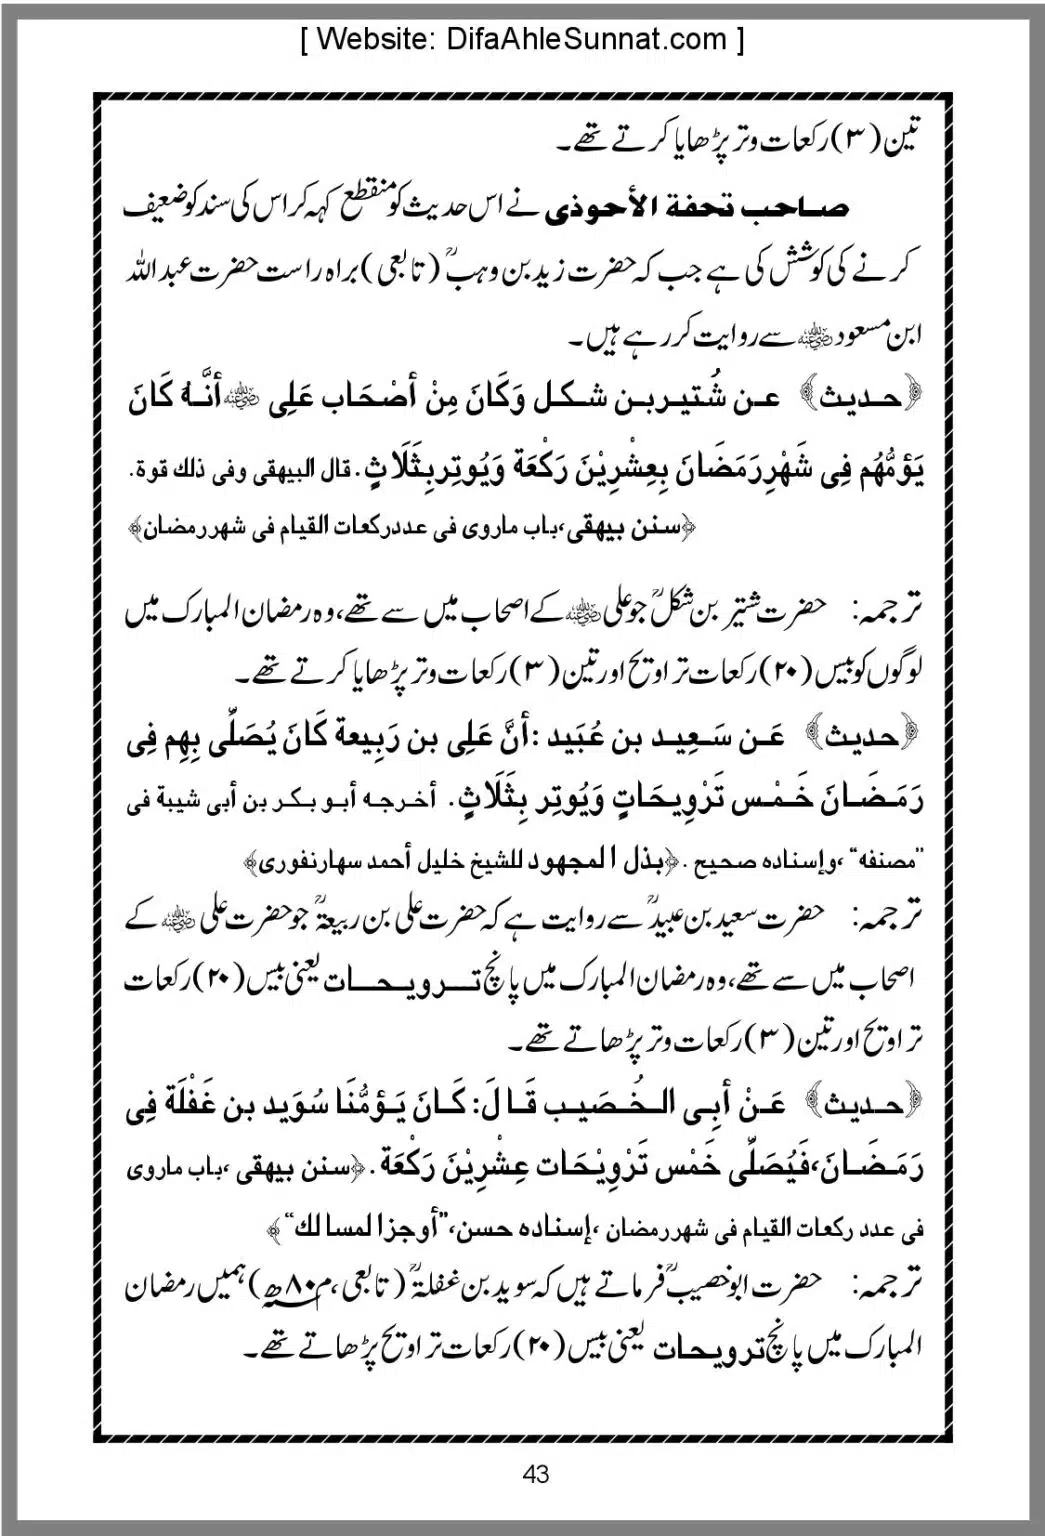 [ Website: DifaAhleSunnat.com ]
تین (۳) رکعات وتر پڑھایا کرتے تھے۔
صاحب تحفة الأحوذی نے اس حدیث کو منقطع کہہ کر اس کی سند کو ضعیف
کرنے کی کوشش کی ہے جب کہ حضرت زید بن وہبؒ (تابعی) براہ راست حضرت عبداللہ
ابن مسعود رضی اللہ عنہ سے روایت کررہے ہیں۔
﴿حدیث﴾ عن شُتیر بن شکل وَكَانَ مِنْ أصْحَاب عَلِی رضی اللہ عنہ أنَّهُ كَانَ
یَؤمُّهُم فِی شَهْرِ رَمَضَانَ بِعِشْرِیْنَ رَكْعَة وَیُوتِر بِثَلَاثٍ. قال البیهقی وفی ذلك قوة.
﴿سنن بیهقی، باب ماروی فی عدد ركعات القیام فی شهر رمضان﴾
ترجمہ: حضرت شتیر بن شکلؒ جو علی رضی اللہ عنہ کے اصحاب میں سے تھے، وہ رمضان المبارک میں
لوگوں کو بیس (۲۰) رکعات تراویح اور تین (۳) رکعات وتر پڑھایا کرتے تھے۔
﴿حدیث﴾ عَن سَعِید بن عُبَید: أنَّ عَلِی بن رَبِیعة كَانَ یُصَلِّی بِهِم فِی
رَمَضَانَ خَمْس تَرْوِیحَاتٍ وَیُوتِر بِثَلَاثٍ. أخرجه أبو بكر بن أبی شیبة فی
”مصنفه“، وإسناده صحیح. ﴿بذل المجهود للشیخ خلیل أحمد سهارنفوری﴾
ترجمہ: حضرت سعید بن عبیدؒ سے روایت ہے کہ حضرت علی بن ربیعۃؒ جو حضرت علی رضی اللہ عنہ کے
اصحاب میں سے تھے، وہ رمضان المبارک میں پانچ ترویحات یعنی بیس (۲۰) رکعات
تراویح اور تین (۳) رکعات وتر پڑھاتے تھے۔
﴿حدیث﴾ عَنْ أبِی الخُصَیب قَالَ: كَانَ یَؤمُّنَا سُوَید بن غَفْلَة فِی
رَمَضَانَ، فَیُصَلِّی خَمْس تَرْوِیْحَات عِشْرِیْنَ رَكْعَة. ﴿سنن بیهقی، باب ماروی
فی عدد ركعات القیام فی شهر رمضان، إسناده حسن، ”أوجز المسالك“﴾
ترجمہ: حضرت ابو خصیبؒ فرماتے ہیں کہ سوید بن غفلۃؒ (تابعی، م ۸۰ھ) ہمیں رمضان
المبارک میں پانچ ترویحات یعنی بیس (۲۰) رکعات تراویح پڑھاتے تھے۔
43